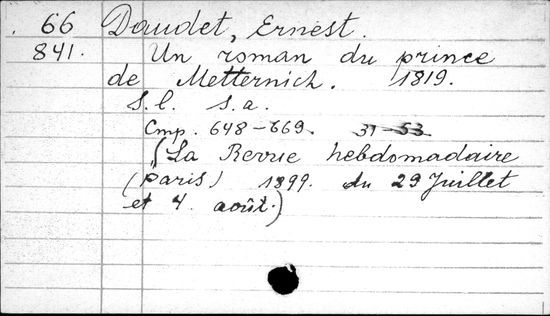 66 Daudet, Ernest.
841. Un roman du prince
de Metternich. 1819.
S.l. s.a.
Стр. 648-669. 31-53
(La Revue hebdomadaire
(Paris) 1899. du 29 Juillet
et 4. août.)